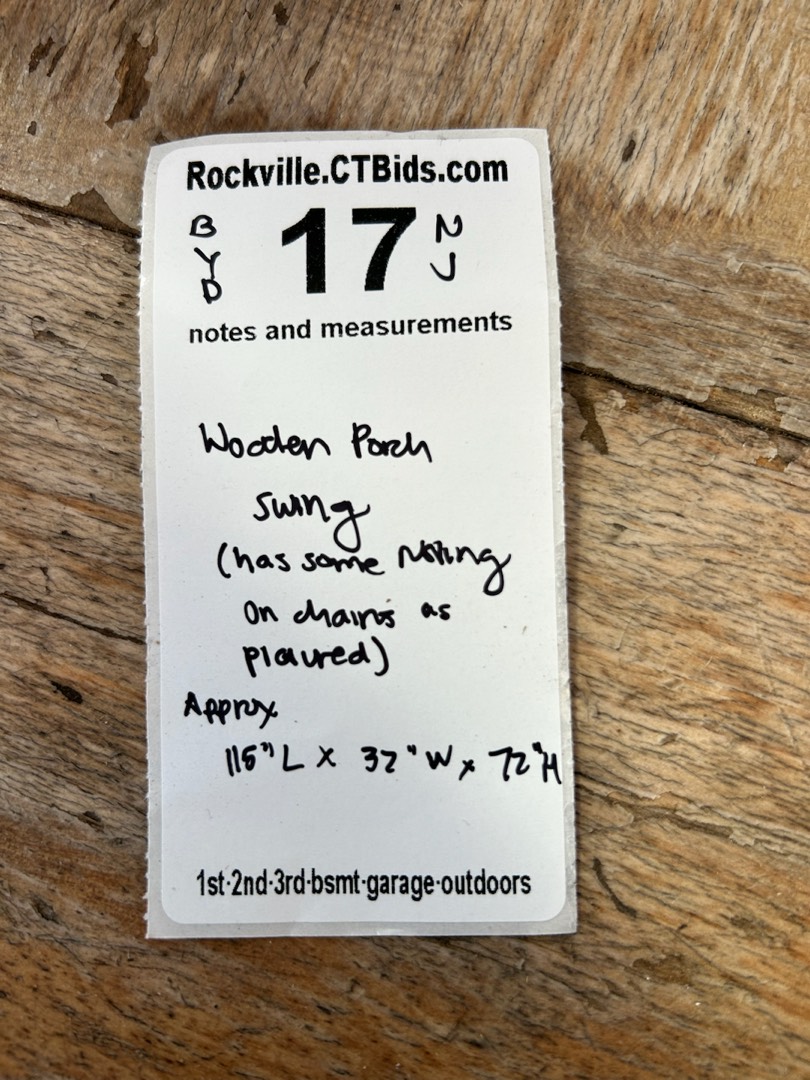 Rockville.CTBids.com
BYD 17 NJ
notes and measurements
Wooden Porch
Swing
(has some
on chains as
Approx
115" L x 32" W x 72" H
1st-2nd-3rd-bsmt-garage-outdoors